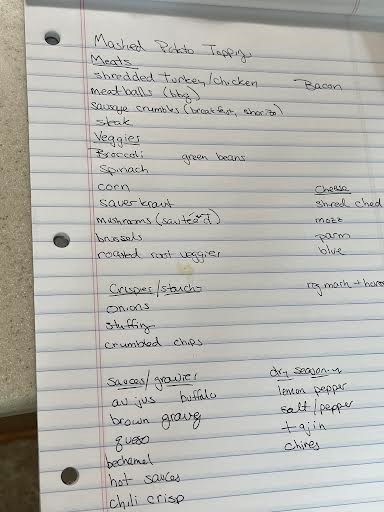 Mashed Potato Topping
Meats
shredded turkey/chicken Bacon
meatballs (bbq)
sausage crumbles (breakfast, chorizo)
steak
Veggies
Broccoli green beans
Spinach
corn
saverkraut
mushrooms (sauteed)
brussels
roasted root veggies
Cheese
shred ched
mozz
parm
blue
Crispies/starchs
onions
stuffing
crumbled chips
rg mash + hors
sauces/gravies
au jus buffalo
brown gravy
queso
bechamel
hot sauces
chili crisp
dry seasonin
lemon pepper
salt/pepper
tajin
chives